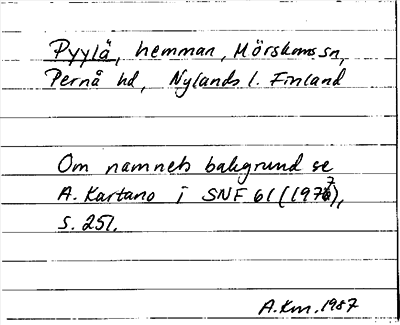 Pyylä, hemman, Mörskoms sn,
Pernå hd, Nylands l. Finland
Om namnets bakgrund se
A. Kartano i SNF 61 (1977),
s. 251.
A.Km. 1987